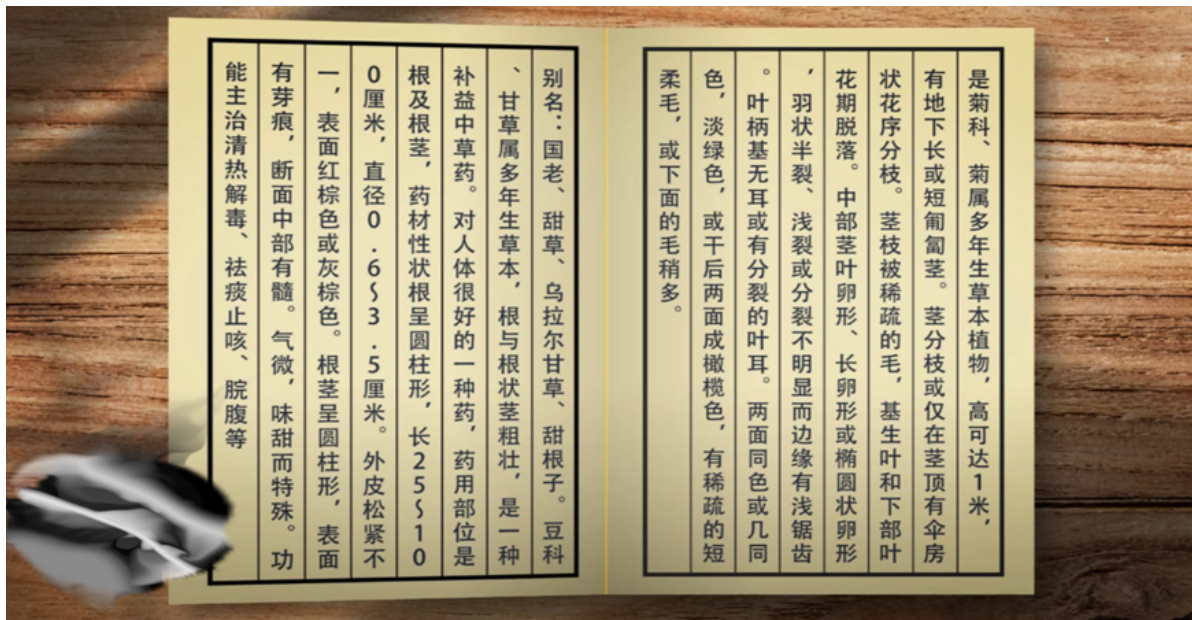 是菊科、菊属多年生草本植物，高可达1米，
有地下长或短匍匐茎。茎分枝或仅在茎顶有伞房
状花序分枝。茎枝被稀疏的毛，基生叶和下部叶
花期脱落。中部茎叶卵形、长卵形或椭圆状卵形
，羽状半裂、浅裂或分裂不明显而边缘有浅锯齿
。叶柄基无耳或有分裂的叶耳。两面同色或几同
色，淡绿色，或干后两面成橄榄色，有稀疏的短
柔毛，或下面的毛稍多。
别名：国老、甜草、乌拉尔甘草、甜根子。豆科
、甘草属多年生草本，根与根状茎粗壮，是一种
补益中草药。对人体很好的一种药，药用部位是
根及根茎，药材性状根呈圆柱形，长25~10
0厘米，直径0.6~3.5厘米。外皮松紧不
一，表面红棕色或灰棕色。根茎呈圆柱形，表面
有芽痕，断面中部有髓。气微，味甜而特殊。功
能主治清热解毒、祛痰止咳、脘腹等